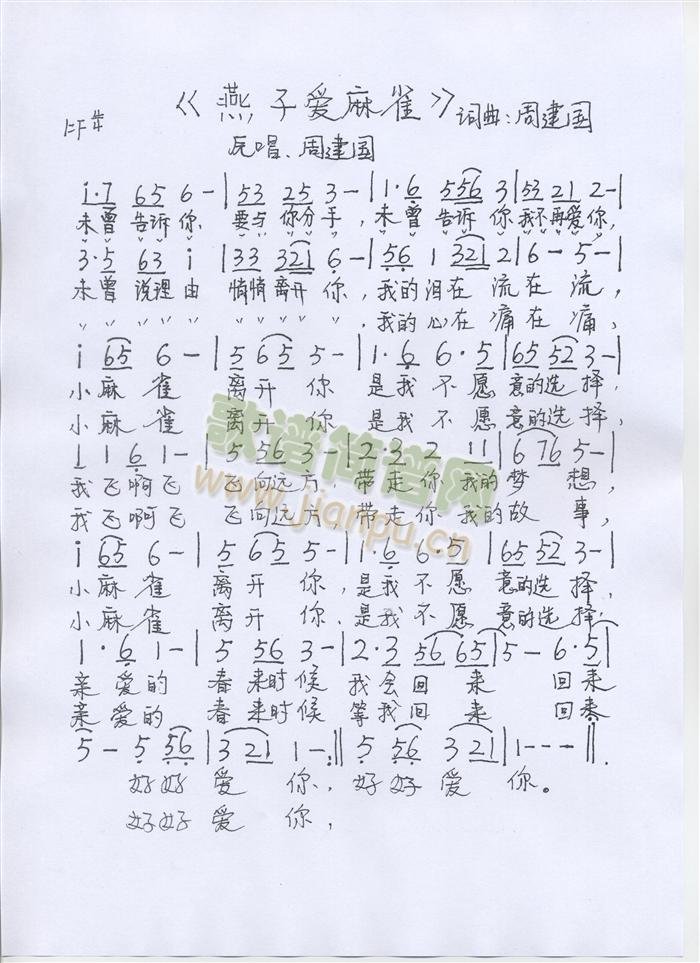 《燕子爱麻雀》 词曲:周建国
1=F 4/4
原唱、周建国
i·7 65 6-|53 25 3-|1·6 556 3|53 21 2-|
未曾 告诉 你 要与 你分 手，未曾 告诉 你我不再爱你，
3·5 63 i|33 321 6-|56 1 321 2|6- 5-|
未曾 说理 由 悄悄 离开 你，我的泪在 流在 流，
〃〃 〃〃 〃 〃〃 〃〃 〃 我的心在 痛在 痛，
i 65 6-|5 65 5-|1·6 6·5|65 52 3-|
小 麻 雀 离 开 你 是我 不 愿 意的选 择，
小 麻 雀 离 开 你 是我 不 愿 意的选 择，
1 1 6 1-|5 56 3-|2·3 2 11|6 76 5-|
我飞啊飞 飞向远方，带走你 我的梦 想，
我飞啊飞 飞向远方，带走你 我的故 事，
i 65 6-|5 65 5-|1·6 6·5|65 52 3-|
小 麻 雀 离 开 你，是我 不 愿 意的选 择，
小 麻 雀 离 开 你，是我 不 愿 意的选 择，
1·6 1-|5 56 3-|2·3 56 65|5- 6·5|
亲 爱的 春 来时 候 我会 回 来 回来
亲 爱的 春 来时 候 等我 回 来 回来
5- 5 56|3 21 1-:‖5 56 3 21|1---‖
好好 爱 你，好好 爱 你。
好好 爱 你，
歌谱简谱网
www.jianpu.cn